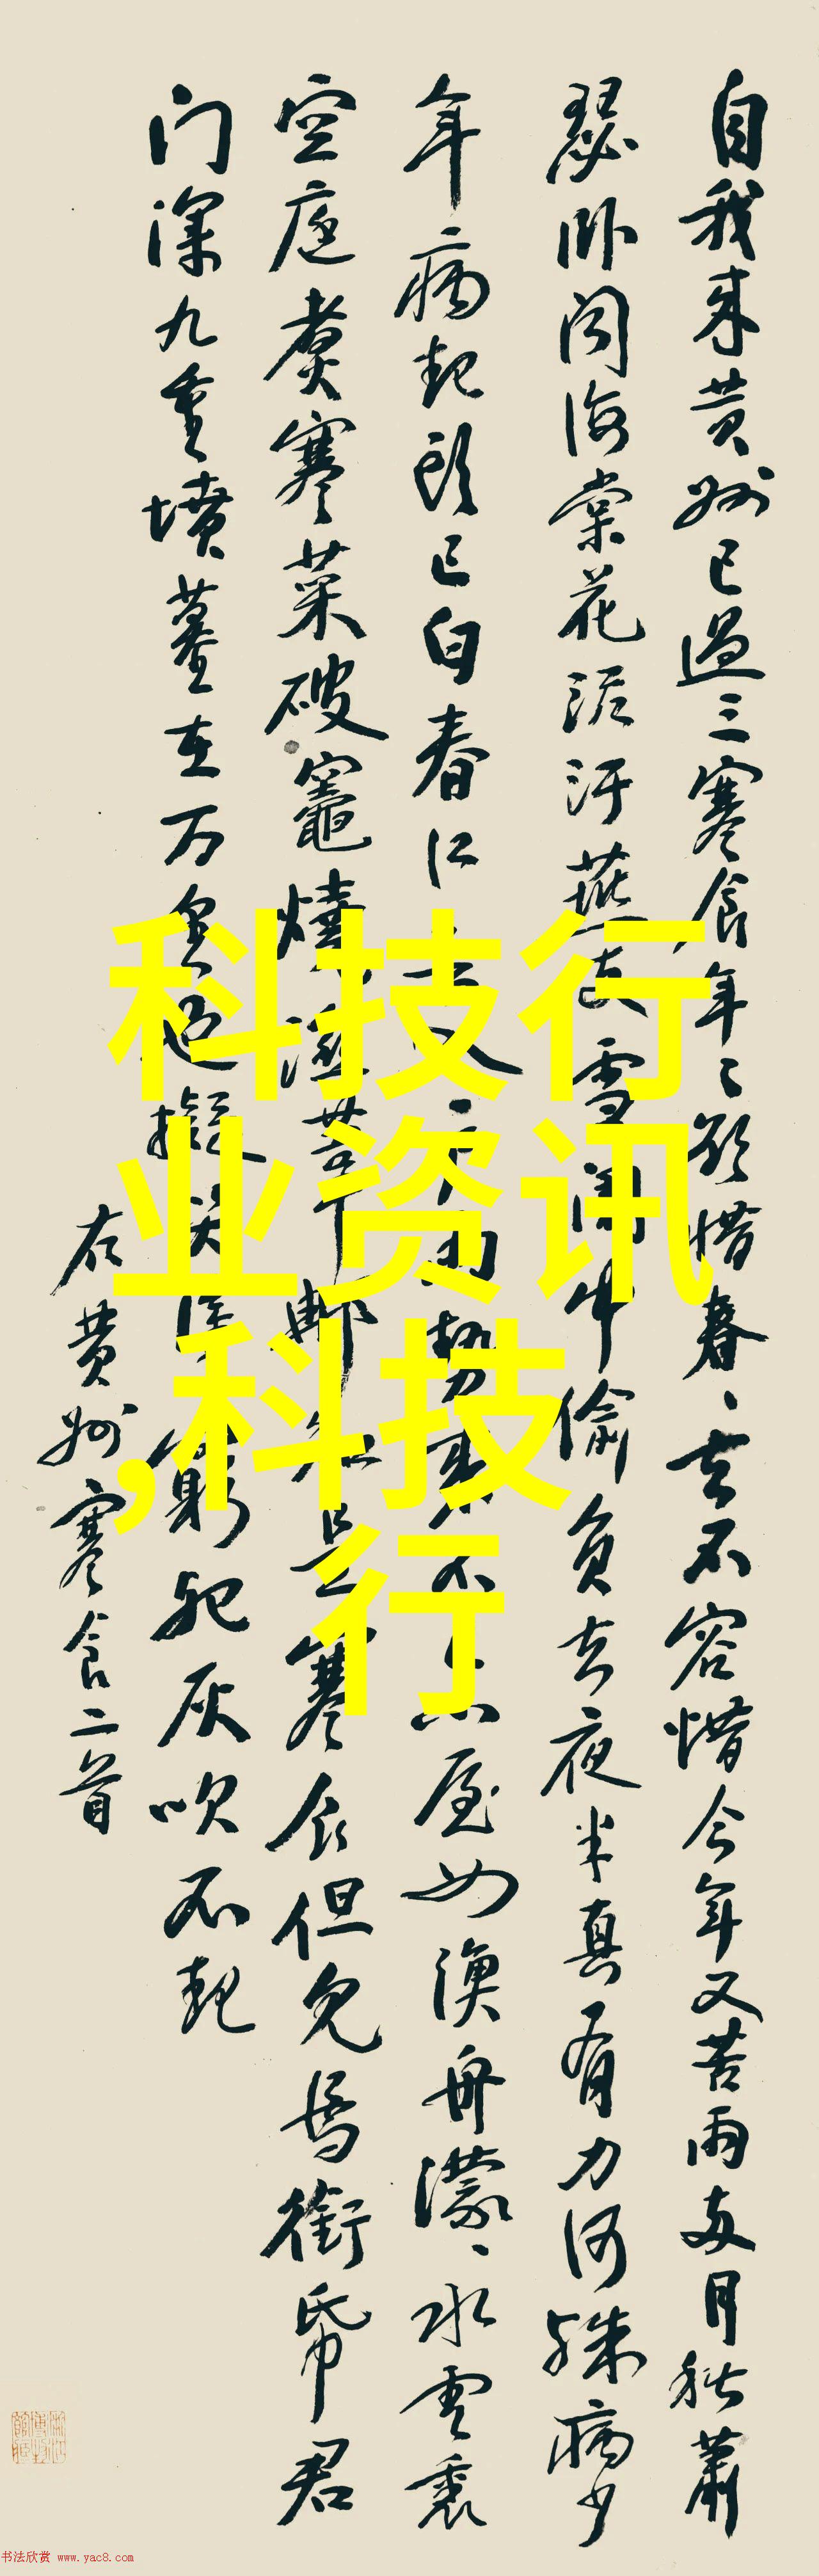 自我来黄州已過三寒食年々欲惜春々去不容惜今年又苦雨两月秋蕭
瑟卧闻海棠花泥汙燕支雪闇中偷負去夜半真有力何殊病少
年病起頭已白春江入户雨勢来不已屋如漁舟濛々水雲裏
空庖煮寒菜破竈燒濕葦那知是寒食但見烏銜帋君
门深九重墳墓在万里也擬哭塗窮死灰吹不起
右黄州寒食二首
科技行
业资讯
,科技
行
书法欣赏 www.yac8.com